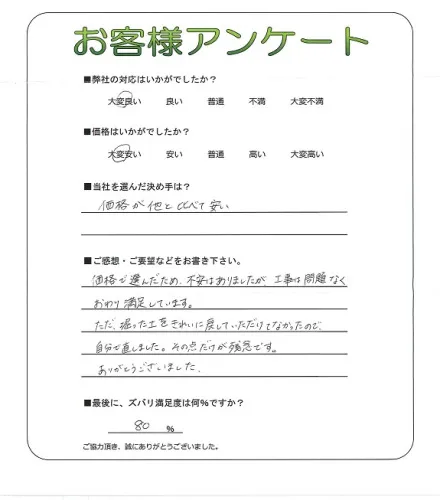 お客様アンケート
■弊社の対応はいかがでしたか?
大変良い 良い 普通 不満 大変不満
■価格はいかがでしたか?
大変安い 安い 普通 高い 大変高い
■当社を選んだ決め手は?
価格が他と比べて安い
■ご感想・ご要望などをお書き下さい。
価格で選んだため、不安はありましたが、工事は問題なく
おわり満足しています。
ただ、掘った土をきれいに戻していただけてなかったので、
自分で直しました。その点だけが残念です。
ありがとうございました。
■最後に、ズバリ満足度は何%ですか?
80 %
ご協力頂き、誠にありがとうございました。